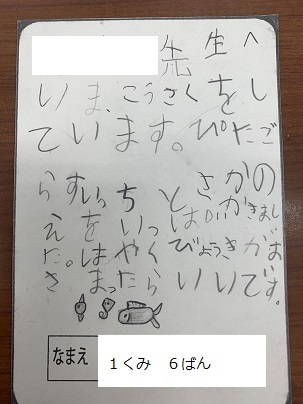 先生へ
いま、こうさくをし
ています。ぴたご
らすいっちとさかなの
えをいっぱいかきまし
た。はやくびょうきがお
さまったらいいです。
なまえ １くみ ６ばん